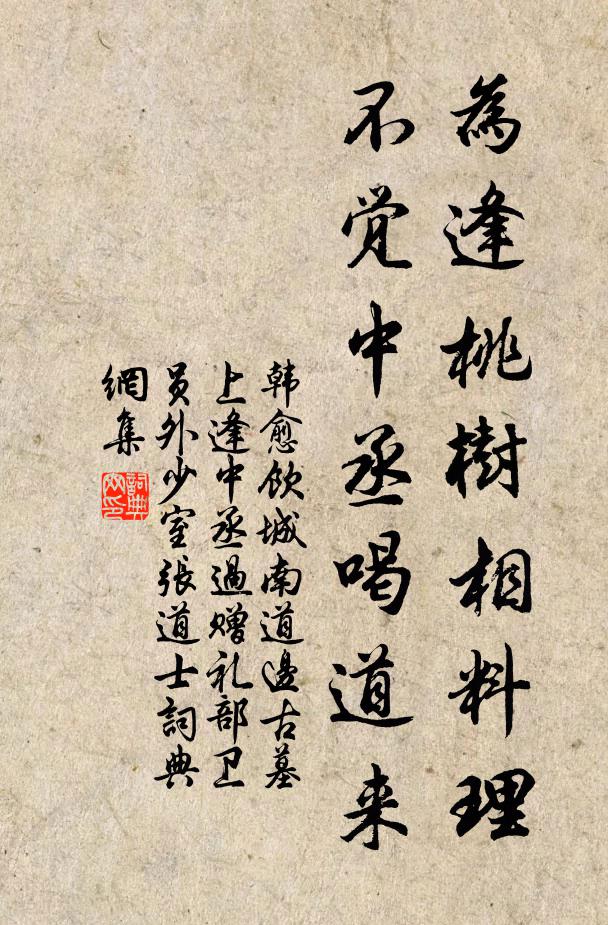 為逢桃樹相料理
不觉中丞喝道来
韩愈饮城南道邊古墓
上逢中丞過赠礼部卫
员外少室張道士詞典
網集
詞典
网印